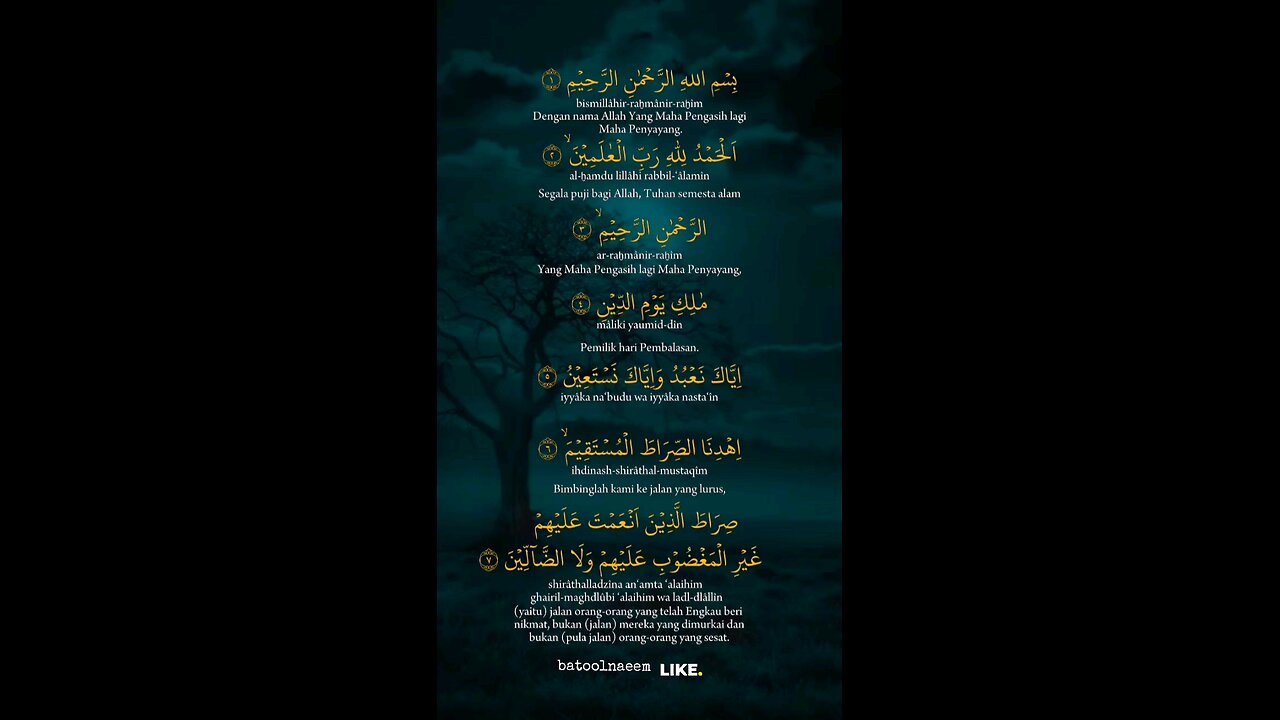 بِسْمِ اللهِ الرَّحْمٰنِ الرَّحِيْمِ ١
bismillâhir-raḫmânir-raḫîm
Dengan nama Allah Yang Maha Pengasih lagi
Maha Penyayang.
اَلْحَمْدُ لِلّٰهِ رَبِّ الْعٰلَمِيْنَۙ ٢
al-ḫamdu lillâhi rabbil-‘âlamîn
Segala puji bagi Allah, Tuhan semesta alam
الرَّحْمٰنِ الرَّحِيْمِۙ ٣
ar-raḫmânir-raḫîm
Yang Maha Pengasih lagi Maha Penyayang,
مٰلِكِ يَوْمِ الدِّيْنِ ٤
mâliki yaumid-dîn
Pemilik hari Pembalasan.
اِيَّاكَ نَعْبُدُ وَاِيَّاكَ نَسْتَعِيْنُ ٥
iyyâka na‘budu wa iyyâka nasta‘în
اِهْدِنَا الصِّرَاطَ الْمُسْتَقِيْمَۙ ٦
ihdinash-shirâthal-mustaqîm
Bimbinglah kami ke jalan yang lurus,
صِرَاطَ الَّذِيْنَ اَنْعَمْتَ عَلَيْهِمْ
غَيْرِ الْمَغْضُوْبِ عَلَيْهِمْ وَلَا الضَّاۤلِّيْنَ ٧
shirâthalladzîna an‘amta ‘alaihim
ghairil-maghdlûbi ‘alaihim wa ladl-dlâllîn
(yaitu) jalan orang-orang yang telah Engkau beri
nikmat, bukan (jalan) mereka yang dimurkai dan
bukan (pula jalan) orang-orang yang sesat.
batoolnaeem LIKE.